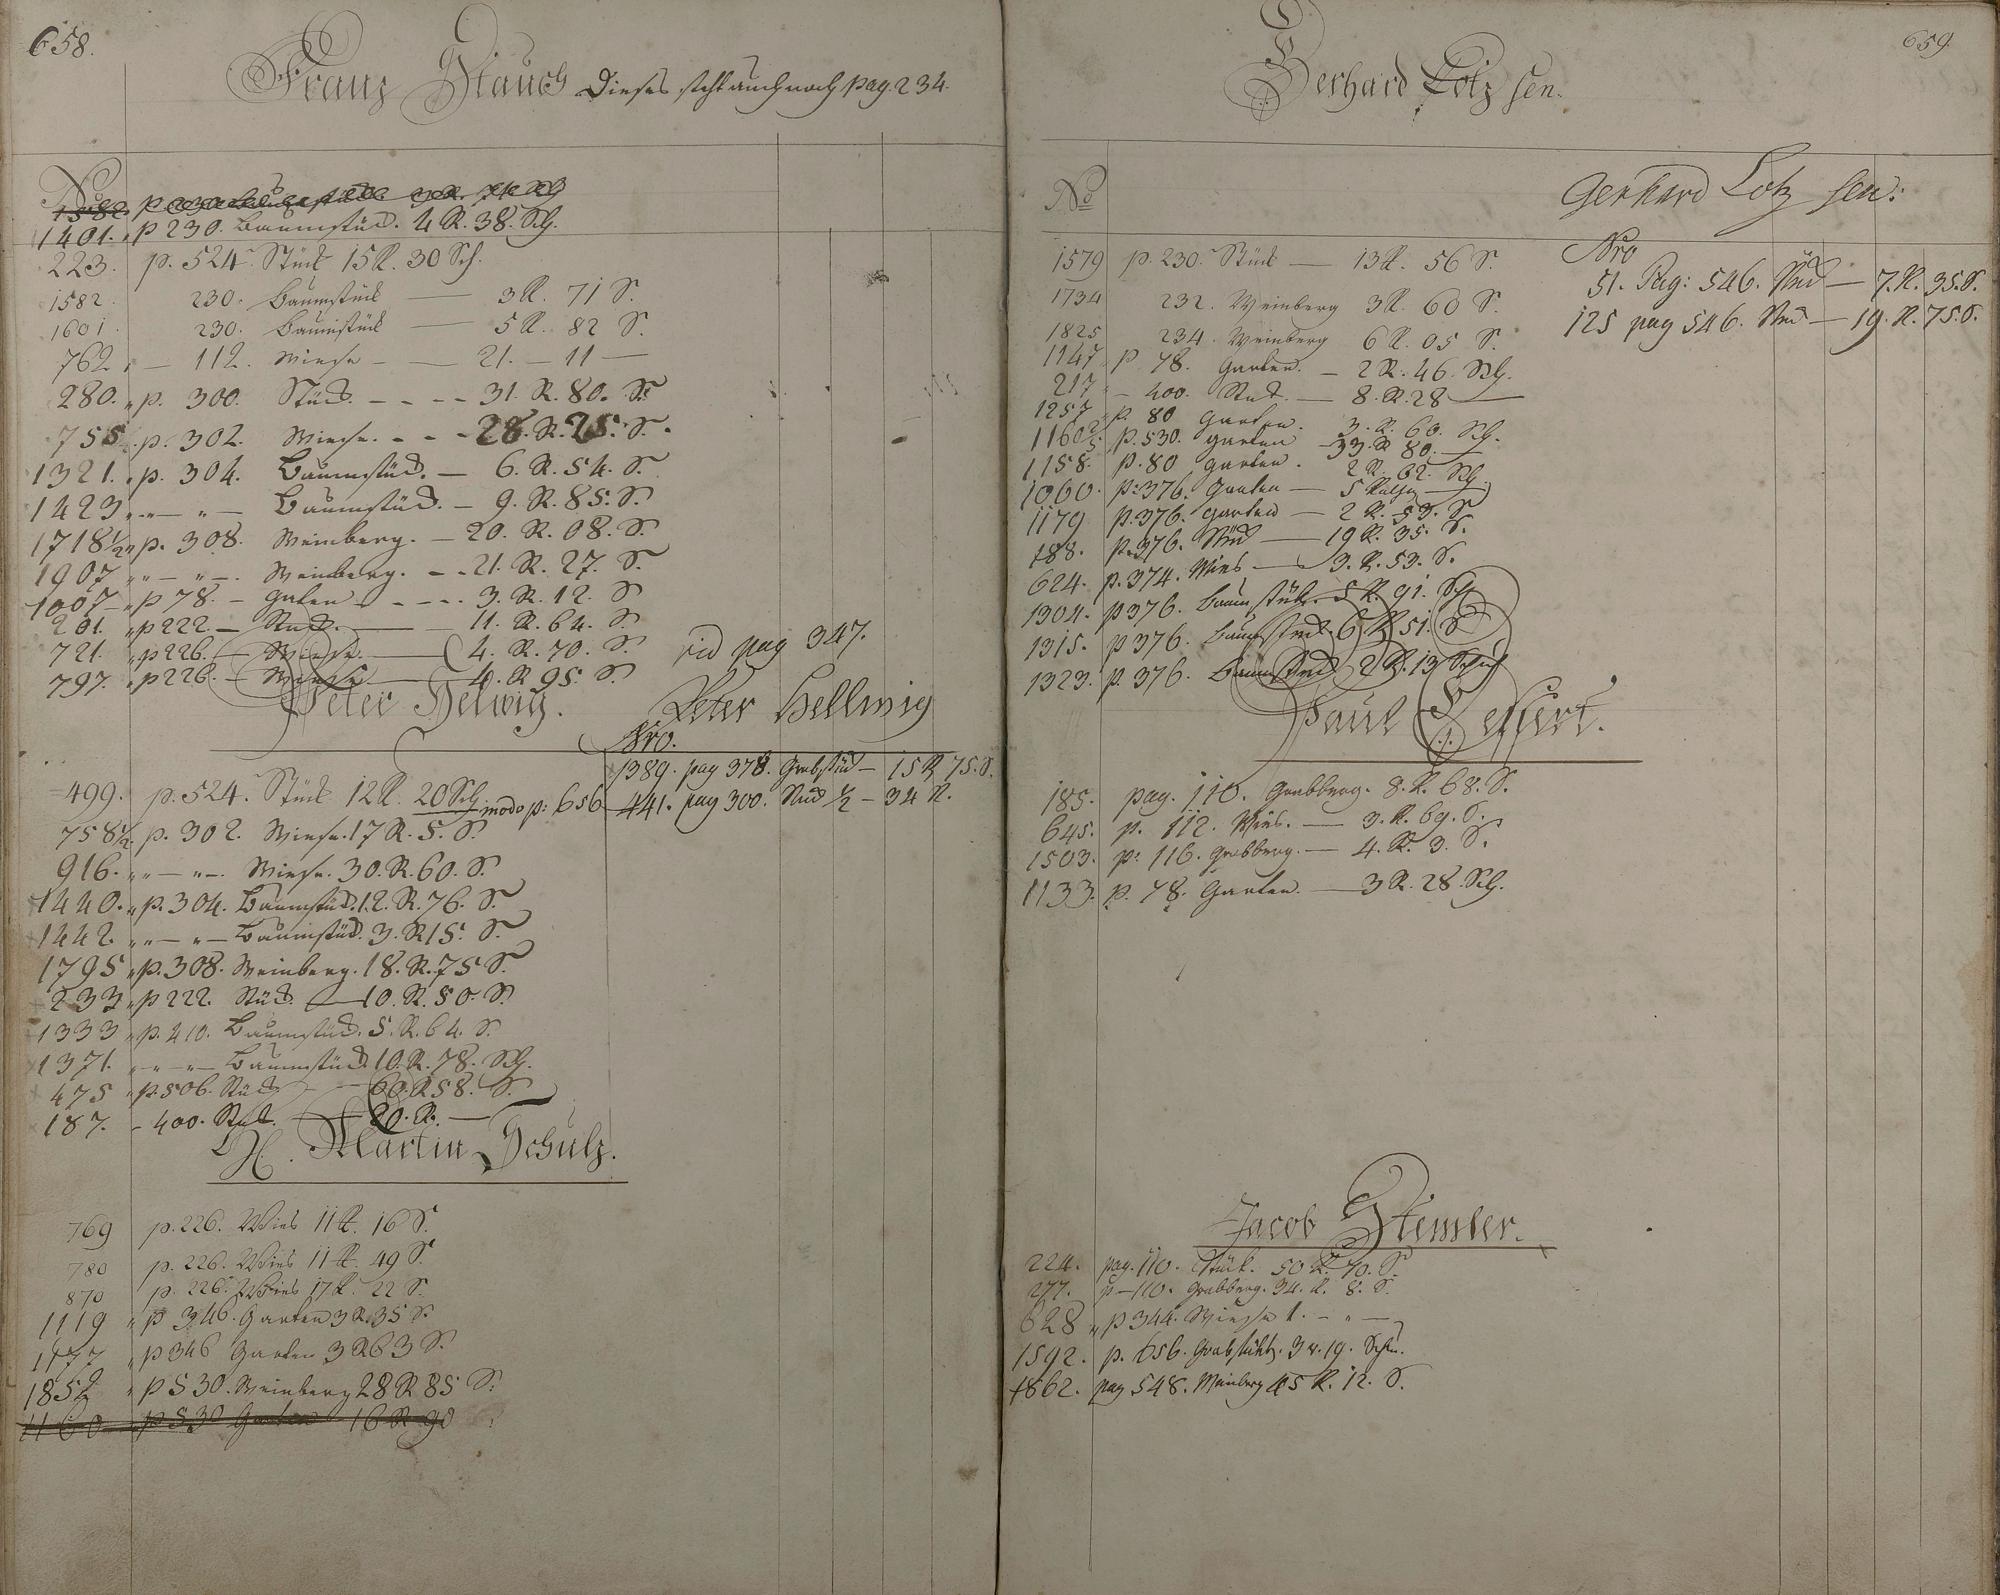 658.
Franz Stauch Dieses steht auch noch pag. 234.
No
1582. p 230 Baumstück 3 R. 71 Sch
1401. p 230. Baumstück. 4 R. 38. Sch.
223. p. 524 Stück 15 R. 30 Sch.
1582. 230. Baumstück — 3 R. 71 S.
1601. 230. Baumstück — 5 R. 82 S.
762. — 112. Wiese — 21. — 11 —
280. p. 300. Stück. - - - - 31. R. 80. S.
755. p. 302. Wiese. - - - 28. R. 25. S.
1321. p. 304. Baumstück. — 6. R. 54. S.
1423 " — " — Baumstück. — 9. R. 85. S.
1718 1/2 p. 308. Weinberg. — 20. R. 08. S.
1907 " — " —. Weinberg. - - 21. R. 27. S.
1007 — p 78. — Garten - - - - 3. R. 12. S
201. p 222. — Stück. — 11. R. 64. S.
721. p 226. — Wiese. — 4. R. 70. S.
797. p 226. — Wiese. — 4. R 95. S.
vid pag 347.
Peter Helwig.
Peter Hellwig
Nro.
1389. pag 378. Grabstück — 15 R 75. S.
441. pag 300. Stück 1/2 — 34 R.
499. p. 524. Stück 12 R. 20 Sch modo p: 656
758 1/2. p. 302. Wiese. 17 R. 5. S.
916. " — " —. Wiese. 30. R. 60. S.
1440. p. 304. Baumstück. 12. R. 76. S.
1442. " — " — Baumstück. 3. R 15. S.
1795 p. 308. Weinberg. 18. R. 75 S.
233 p 222. Stück. — 10. R. 50. S.
1333 p. 410. Baumstück. 5. R. 64. S.
1371. " — " — Baumstück 10. R. 78. Sch.
475 p. 506. Stück — 60. R 58. S.
187. - 400. Stück. — 20. R. —
H. Martin Schulz.
769 p. 226. Wies 11 R. 16 S.
780 p. 226. Wies 11 R. 49 S.
870 p. 226. Wies 17 R. 22 S.
1119 p 346. Garten 3 R. 35 S
1177 p 346 Garten 3 R 63 S.
p 530. Weinberg 28 R 85 S.
1160 p 530 Garten 16 R 90
659
Gerhard Lotz sen.
No
1579 p. 230. Stück — 13 R. 56 S.
1734 232. Weinberg 3 R. 60 S.
1825 234. Weinberg 6 R. 05 S.
1147 p 78. Garten. — 2 R. 46. Sch.
217 — 400. Stück. — 8. R. 28 —
1257 p. 80 Garten. 3. R. 60. Sch.
p. 530. Garten 33. R 80. —
1158. p. 80 Garten. 2 R. 62. Sch.
1060. p. 376. Garten — 5 Ruthen —
1179 p. 376. Garten — 2 R. 53. S
188. p. 376. Stück — 19 R. 35. S.
624. p. 374. Wies — 3. R. 53. S.
1304. p 376. Baumstück. 5 R. 91. Sch
1315. p 376. Baumstück. 6 R 51. S
1323. p. 376. Baumstück 2 R. 13 Schuh
Gerhard Lotz sen:
Nro
51. Pag: 546. Stück — 7. R. 35. S.
125 pag 546. Stück — 19. R. 75. S.
Paul Seffert.
185. pag. 110. Grabberg. 8. R. 68. S.
645. p. 112. Wies. — 3. R. 69. S.
1503. p. 116. Grabberg. — 4. R. 3. S.
1133. p. 78. Garten. — 3 R. 28. Sch.
Jacob Stemler.
224. pag. 110. Stück. 50 R. 70. S.
277. p — 110. Grabberg. 34. R. 8. S.
628 p 344. Wiese 1. - " —
1592. p. 656. Grabstück. 3 r. 19. Schu.
1862. pag 548. Weinberg 45 R. 12. S.